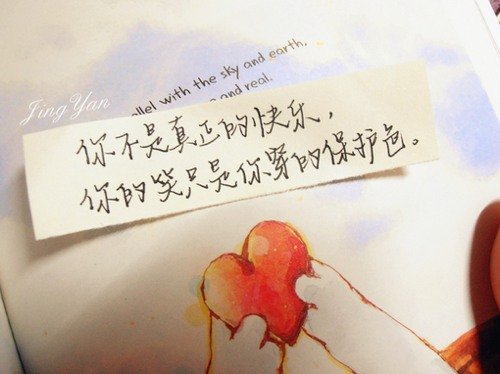 llel with the sky and earth,
and real.
Jing Yan
你不是真正的快乐，
你的笑只是你穿的保护色。